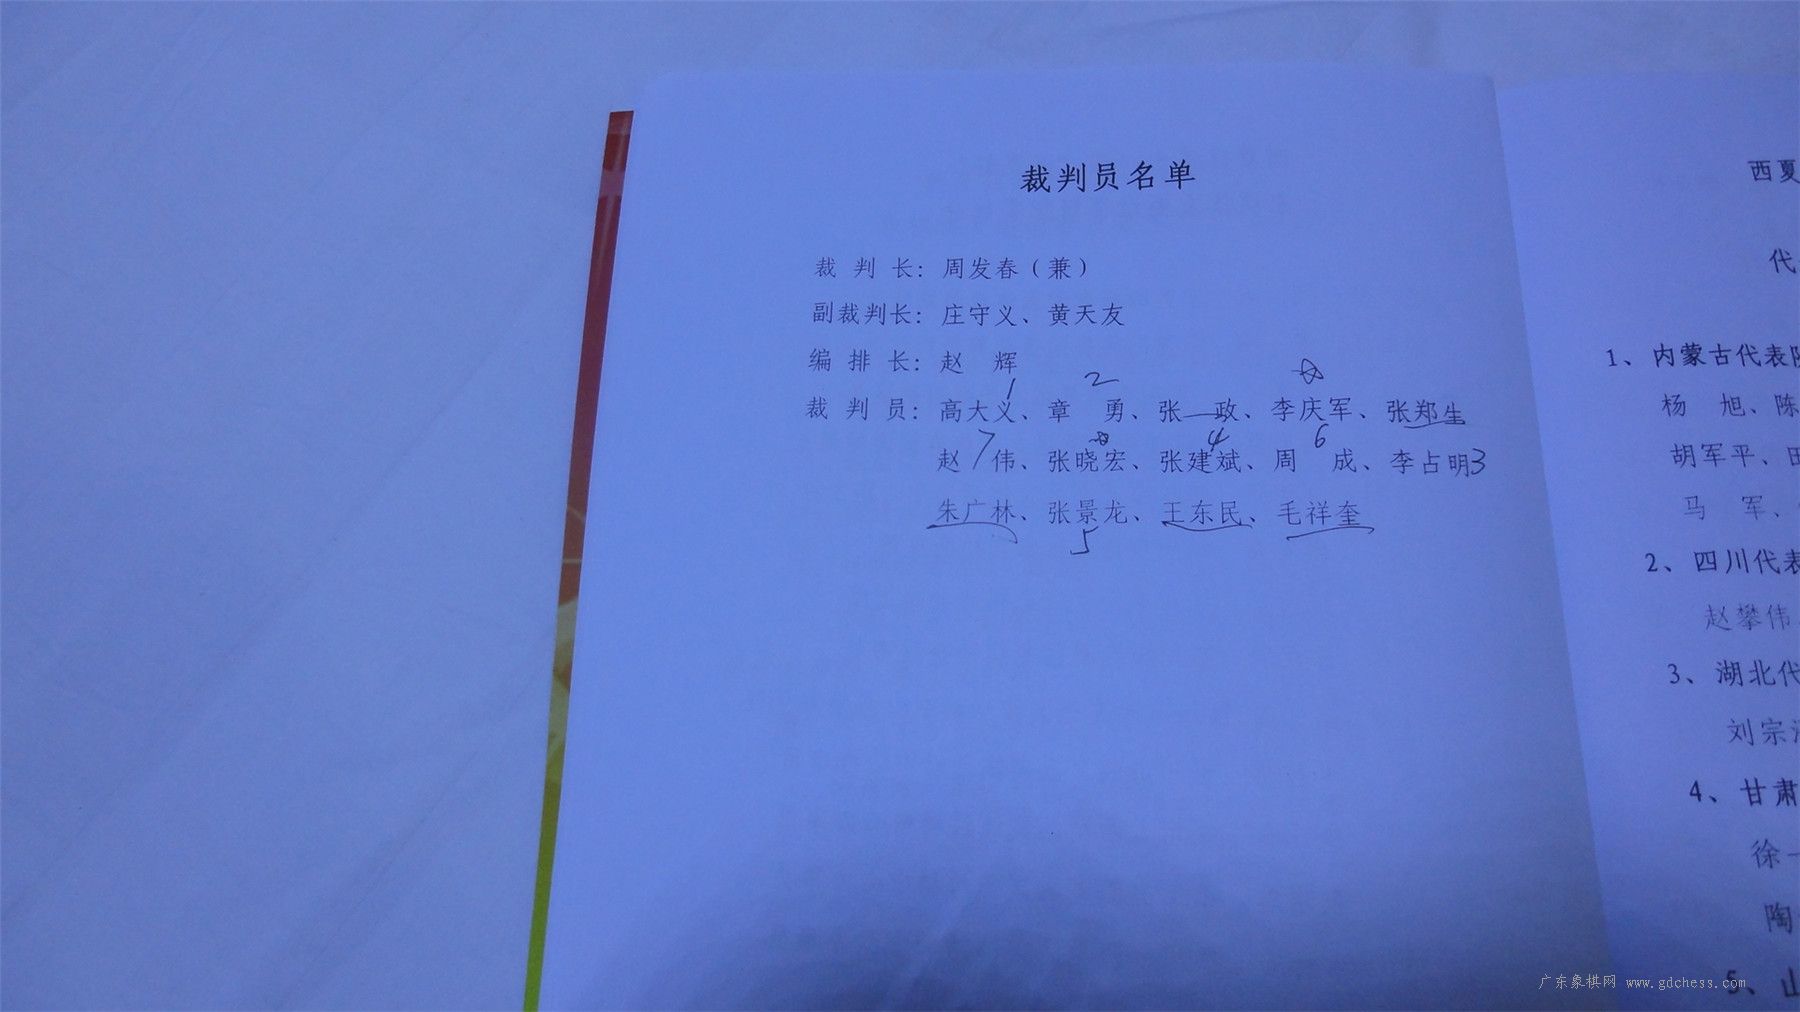 裁判员名单
裁 判 长：周发春（兼）
副裁判长：庄守义、黄天友
编 排 长：赵 辉
1 2 ☆
裁 判 员：高大义、章 勇、张 政、李庆军、张郑生
7 ☆ 4 6
赵 伟、张晓宏、张建斌、周 成、李占明3
朱广林、张景龙、王东民、毛祥奎
5
西夏
代
1、内蒙古代表队
杨 旭、陈
胡军平、田
马 军、
2、四川代表
赵攀伟
3、湖北代
刘宗泽
4、甘肃
徐一
陶
5、山
广东象棋网 www.gdchess.com